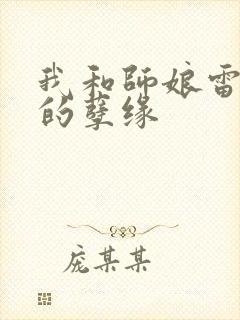 我和師娘雷
的孽缘
庞某某